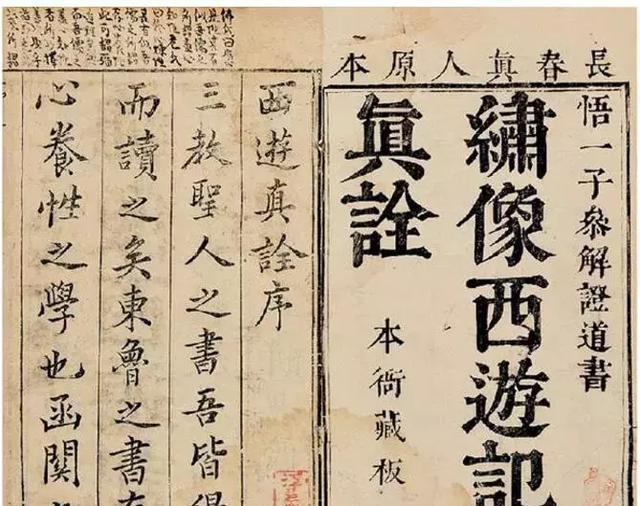 長春眞人原本
悟一子參解證道書
繡像西遊記
眞詮
本衙藏板
西遊真詮序
三教聖人之書吾皆得
而讀之矣東魯之書存
心養性之學也函關之